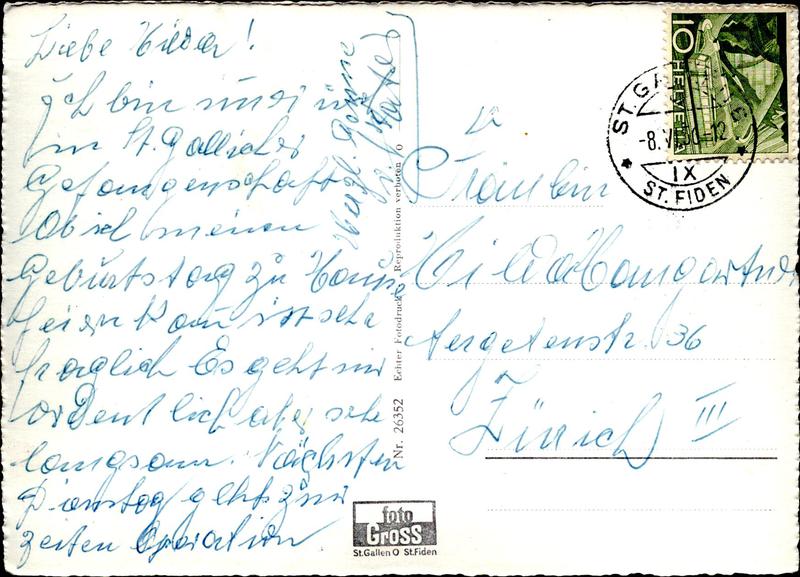 Liebe Hilda!
Ich bin nun in
im St. Gallischer
Gefangenschaft
Ob ich meinen
Geburtstag zu Hause
feiern kann ist sehr
fraglich Es geht mir
ordentlich aber sehr
langsam. Nächsten
Dienstag geht zur
zeiten Operation
Herzl. Grüsse
Nr. 26352 Echter Fotodruck Reproduktion verboten O
foto
Gross
St.Gallen O St.Fiden
10
HELVETIA
ST. GALLEN
-8.VI.50-12
IX
ST. FIDEN
Fräulein
Hilda Baumgartner
Aergetenstr 36
Zürich III